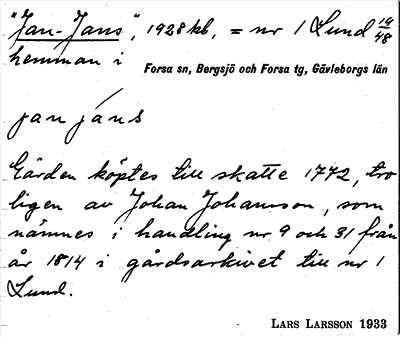 "Jan-Jans", 1928 kb, = nr 1 Lund 19/48
hemman i
Forsa sn, Bergsjö och Forsa tg, Gävleborgs län
jan jáns
Gården köptes till skatte 1772, tro
ligen av Johan Johansson, som
nämnes i handling nr 9 och 31 från
år 1814 i gårdsarkivet till nr 1
Lund.
LARS LARSSON 1933